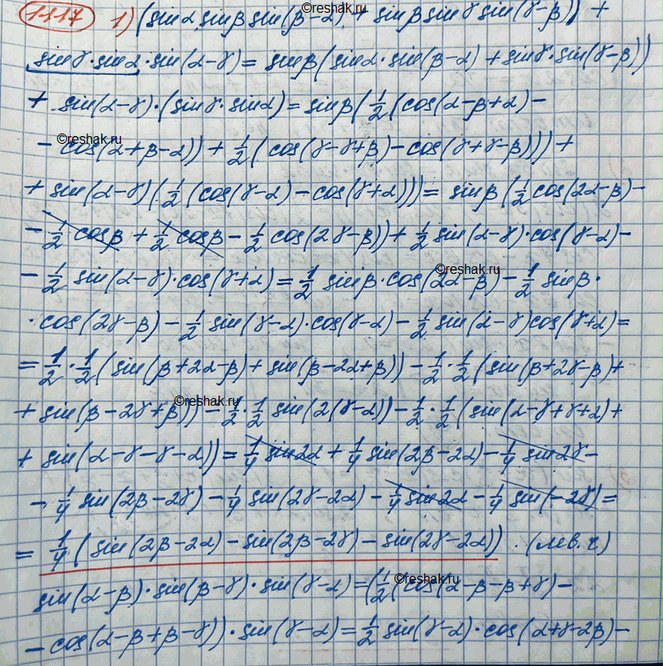 1117 1) (sinα sinβ sin(β-α) + sinβ sinγ sin(γ-β)) +
sinγ·sinα·sin(α-γ) = sinβ(sinα·sin(β-α) + sinγ·sin(γ-β))
+ sin(α-γ)·(sinγ·sinα) = sinβ(1/2(cos(α-β+α) -
- cos(α+β-α)) + 1/2(cos(γ-γ+β) - cos(γ+γ-β))) +
+ sin(α-γ)(1/2(cos(γ-α) - cos(γ+α))) = sinβ(1/2 cos(2α-β) -
- 1/2 cosβ + 1/2 cosβ - 1/2 cos(2γ-β)) + 1/2 sin(α-γ)·cos(γ-α) -
- 1/2 sin(α-γ)·cos(γ+α) = 1/2 sinβ·cos(2α-β) - 1/2 sinβ·
·cos(2γ-β) - 1/2 sin(γ-α)·cos(γ-α) - 1/2 sin(α-γ)cos(γ+α) =
= 1/2·1/2(sin(β+2α-β) + sin(β-2α+β)) - 1/2·1/2(sin(β+2γ-β) +
+ sin(β-2γ+β)) - 1/2·1/2 sin(2(γ-α)) - 1/2·1/2(sin(α-γ+γ+α) +
+ sin(α-γ-γ-α)) = 1/4 sin2α + 1/4 sin(2β-2α) - 1/4 sin2γ -
- 1/4 sin(2β-2γ) - 1/4 sin(2γ-2α) - 1/4 sin2α - 1/4 sin(-2γ) =
= 1/4(sin(2β-2α) - sin(2β-2γ) - sin(2γ-2α)). (лев.ч)
sin(α-β)·sin(β-γ)·sin(γ-α) = (1/2(cos(α-β-β+γ) -
- cos(α-β+β-γ))·sin(γ-α) = 1/2 sin(γ-α)·cos(α+γ-2β) -
©reshak.ru
©reshak.ru
©reshak.ru
©reshak.ru
©reshak.ru